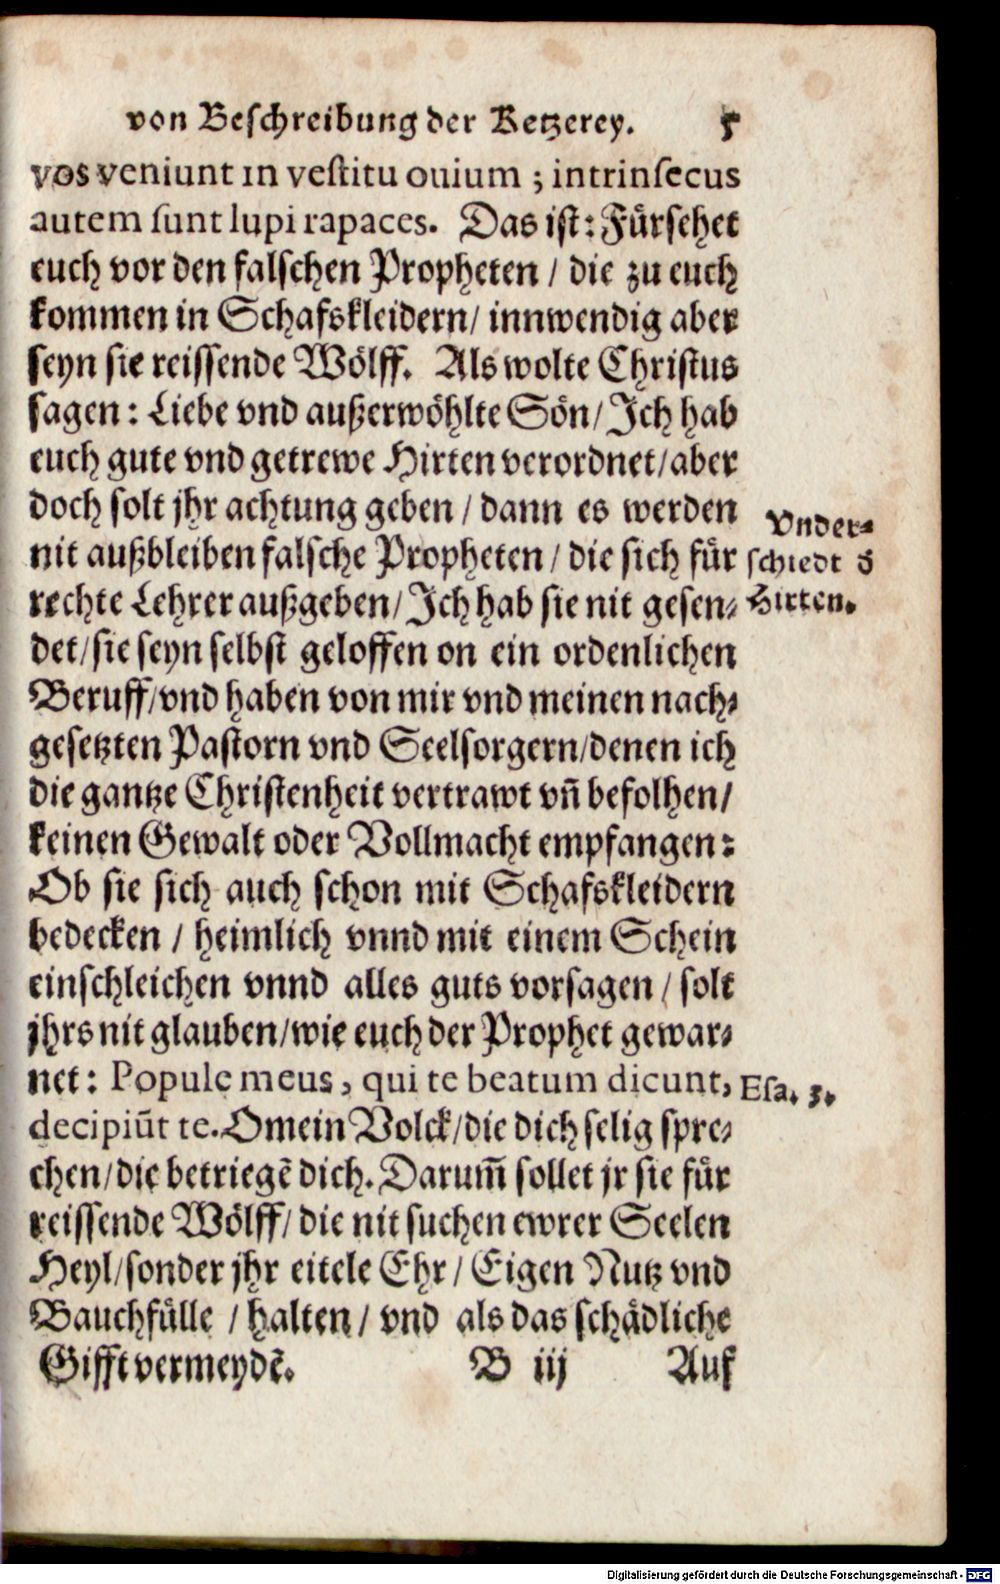 von Beschreibung der Ketzerey. 5
vos veniunt in vestitu ouium ; intrinsecus
autem sunt lupi rapaces. Das ist: Fürsehet
euch vor den falschen Propheten / die zu euch
kommen in Schafskleidern/ innwendig aber
seyn sie reissende Wölff. Als wolte Christus
sagen: Liebe vnd außerwöhlte Sön/ Ich hab
euch gute vnd getrewe Hirten verordnet/ aber
doch solt jhr achtung geben / dann es werden
nit außbleiben falsche Propheten / die sich für
rechte Lehrer außgeben/ Ich hab sie nit gesen-
det/ sie seyn selbst geloffen on ein ordenlichen
Beruff/ vnd haben von mir vnd meinen nach-
gesetzten Pastorn vnd Seelsorgern/ denen ich
die gantze Christenheit vertrawt vn̄ befolhen/
keinen Gewalt oder Vollmacht empfangen:
Ob sie sich auch schon mit Schafskleidern
bedecken / heimlich vnnd mit einem Schein
einschleichen vnnd alles guts vorsagen / solt
jhrs nit glauben/ wie euch der Prophet gewar-
net: Popule meus, qui te beatum dicunt,
decipiūt te. O mein Volck/ die dich selig spre-
chen/ die betriegē dich. Darum̄ sollet jr sie für
reissende Wölff/ die nit suchen ewrer Seelen
Heyl/ sonder jhr eitele Ehr / Eigen Nutz vnd
Bauchfülle / halten / vnd als das schädliche
Gifft vermeydē.
B iij Auf
Vnder-
schiedt d̕
Hirten.
Esa. 3.
Digitalisierung gefördert durch die Deutsche Forschungsgemeinschaft - DFG